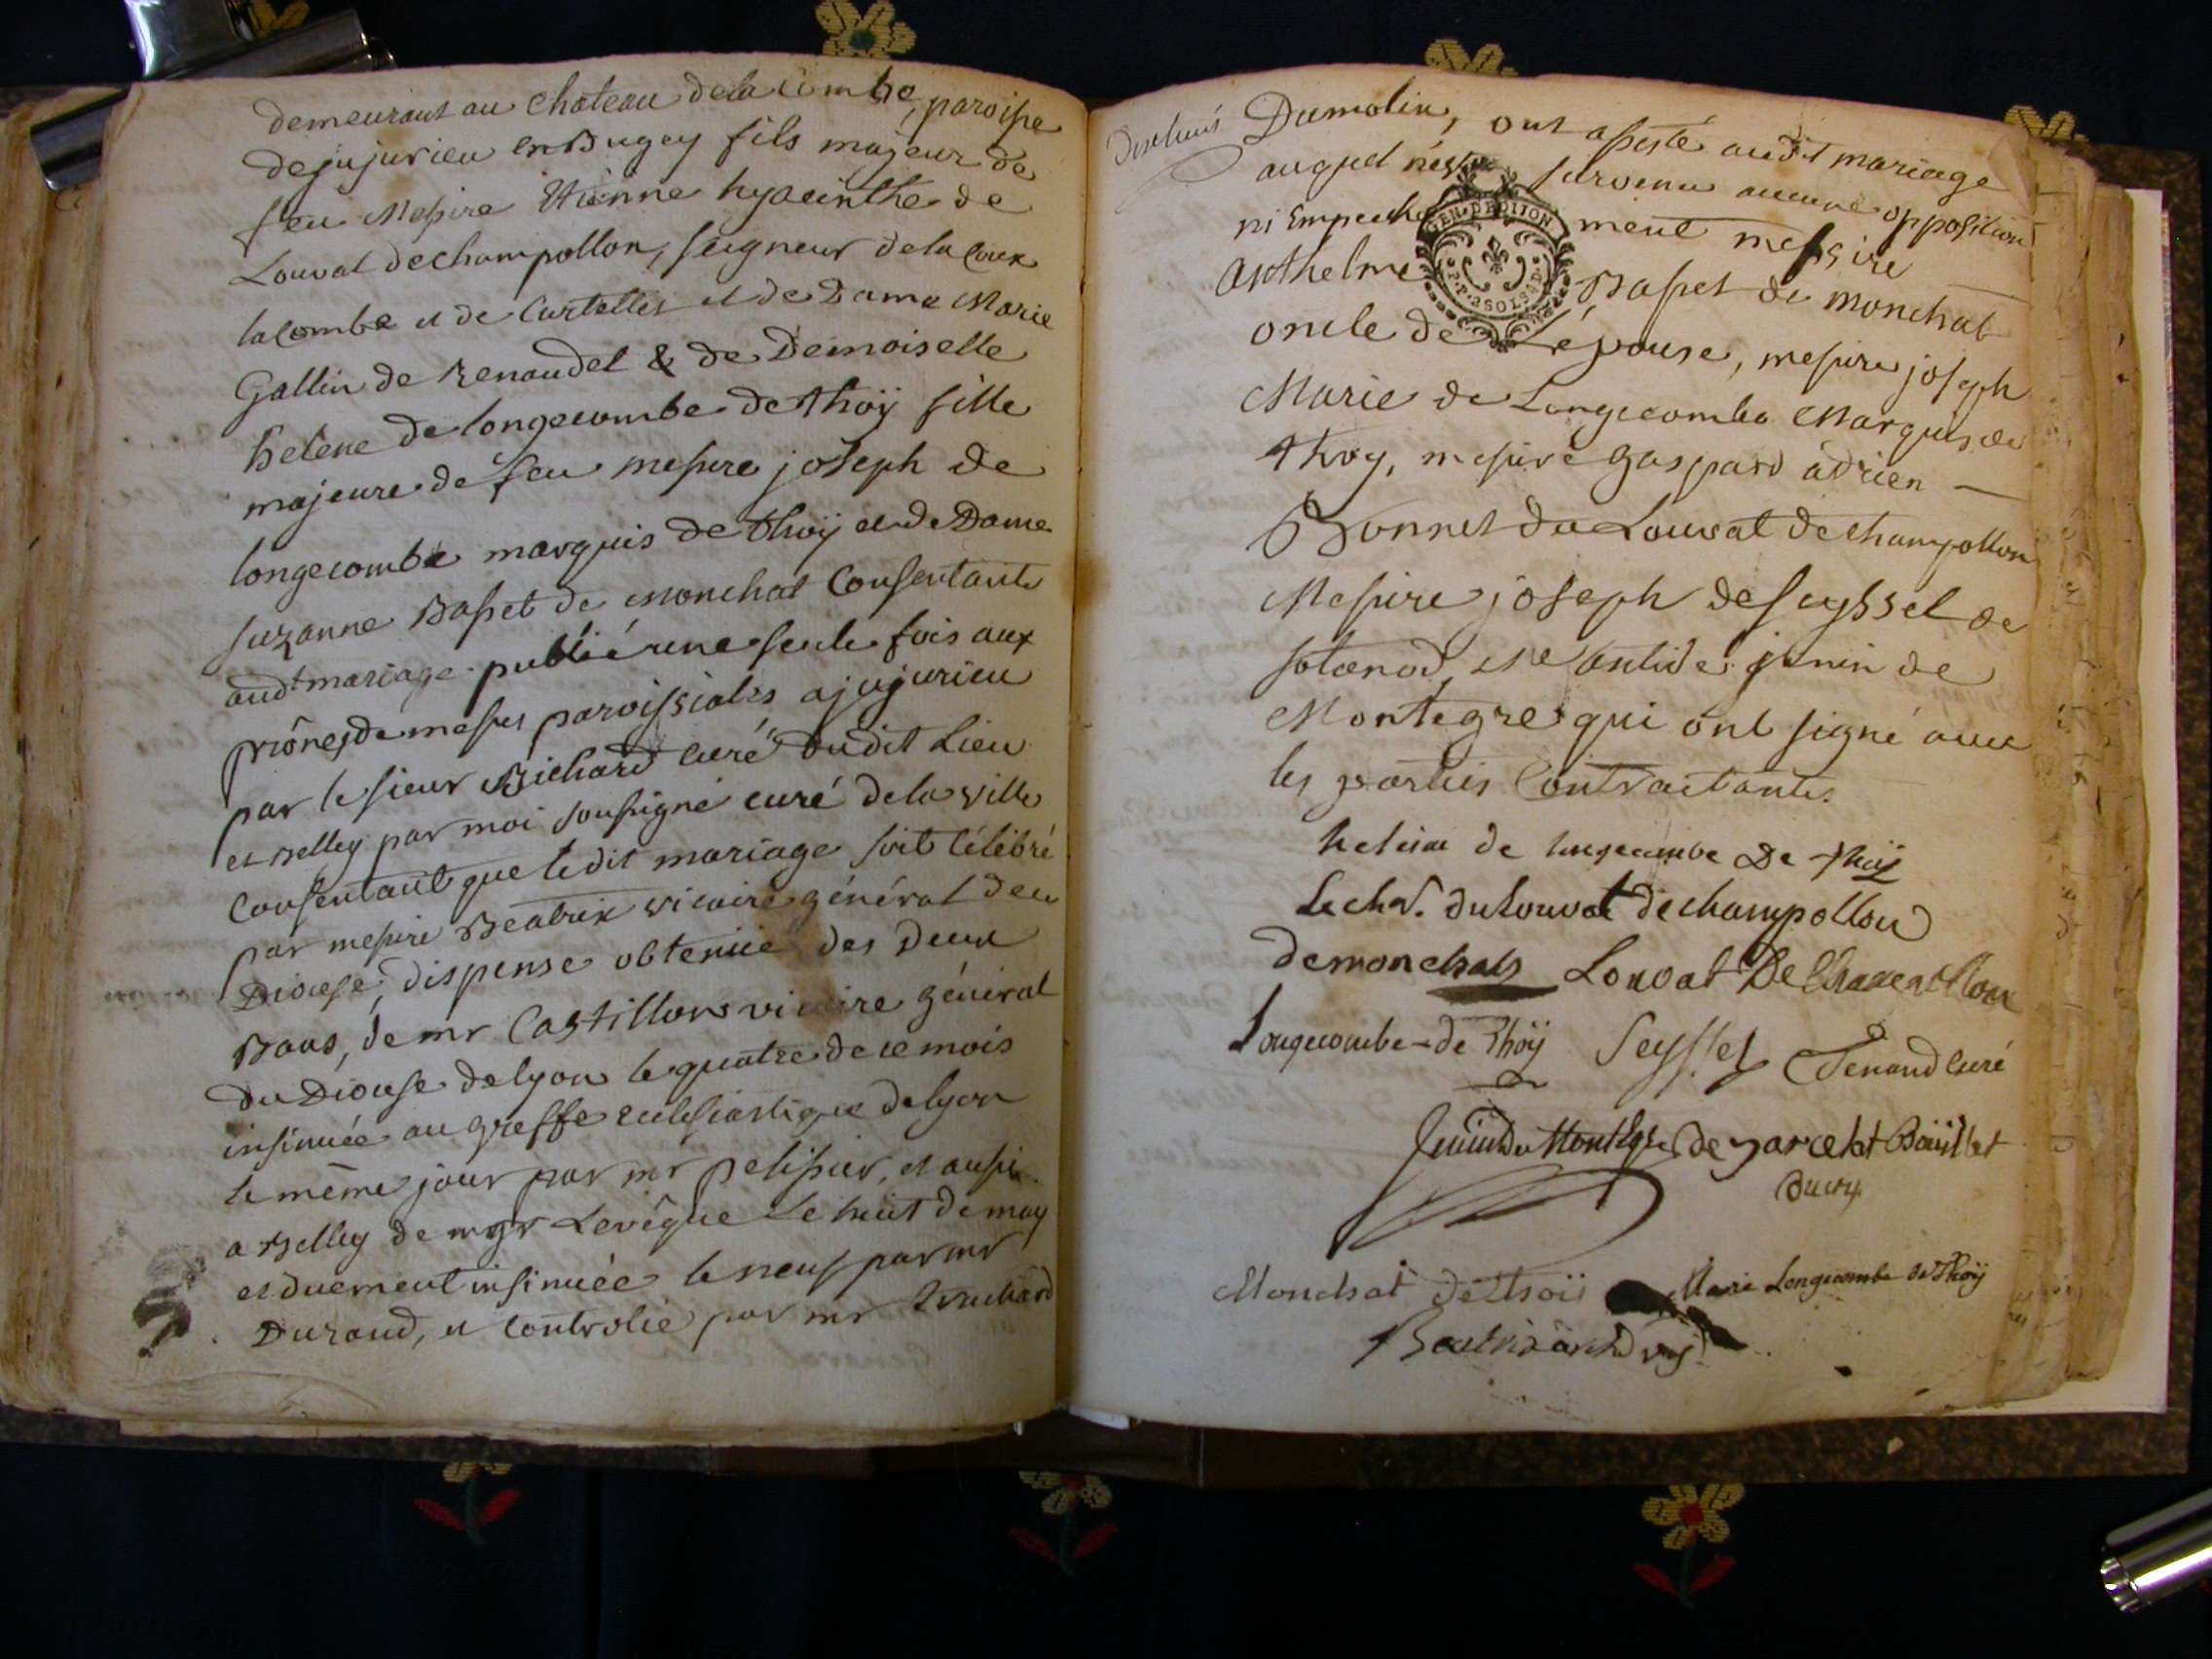 demeurant au chateau de la Combe, paroisse
de jujurieu en Bugey fils majeur de
feu Messire Etienne hyacinthe de
Louvat de champollon, seigneur de la Coux
la Combe et de Curtelles et de Dame Marie
Gallin de Renaudel & de Demoiselle
helene de longecombe de thoÿ fille
majeure de feu messire joseph de
longecombe marquis de thoÿ et de Dame
suzanne Basset de monchat Consentante
audt mariage publié une seule fois aux
prônes de messes paroissiales a jujurieu
par le sieur Bichard curé dudit Lieu
et Belley par moi soussigné curé de la ville
Consentant que le dit mariage soit célébré
par messire Beatrix vicaire général de ce
Diocese, dispense obtenüe des deux
Bans, de mr Castillon vicaire général
du Diocese de lyon le quatre de ce mois
insinuée au greffe ecclesiastique de lyon
le même jour par mr pelissier, et aussi
a Belley de mgr Levêque Le huit de may
et duement insinuée le neuf par mr
Durand, et controlée par mr
Dumolin, ont assisté audit mariage
auquel n'est survenu aucune opposition
ni Empeche ment messire
Anthelme Basset de monchat
oncle de Lépouse, messire joseph
Marie de Longecombe Marquis de
thoy, messire gaspard adrien
Bonnet du Louvat de champollon
Messire joseph de seyssel de
sotonod, Mre antide jenin de
Montegre qui ont signé avec
les parties Contractantes
helene de longecombe De thoÿ
Le chev. du Louvat de champollon
demonchat Louvat De Champollon
Longecombe de Thoÿ Seyssel Tenand curé
Jenin de Montegre
Monchat de thoii Marie Longecombe de Thoÿ
GEN·DE DIJON